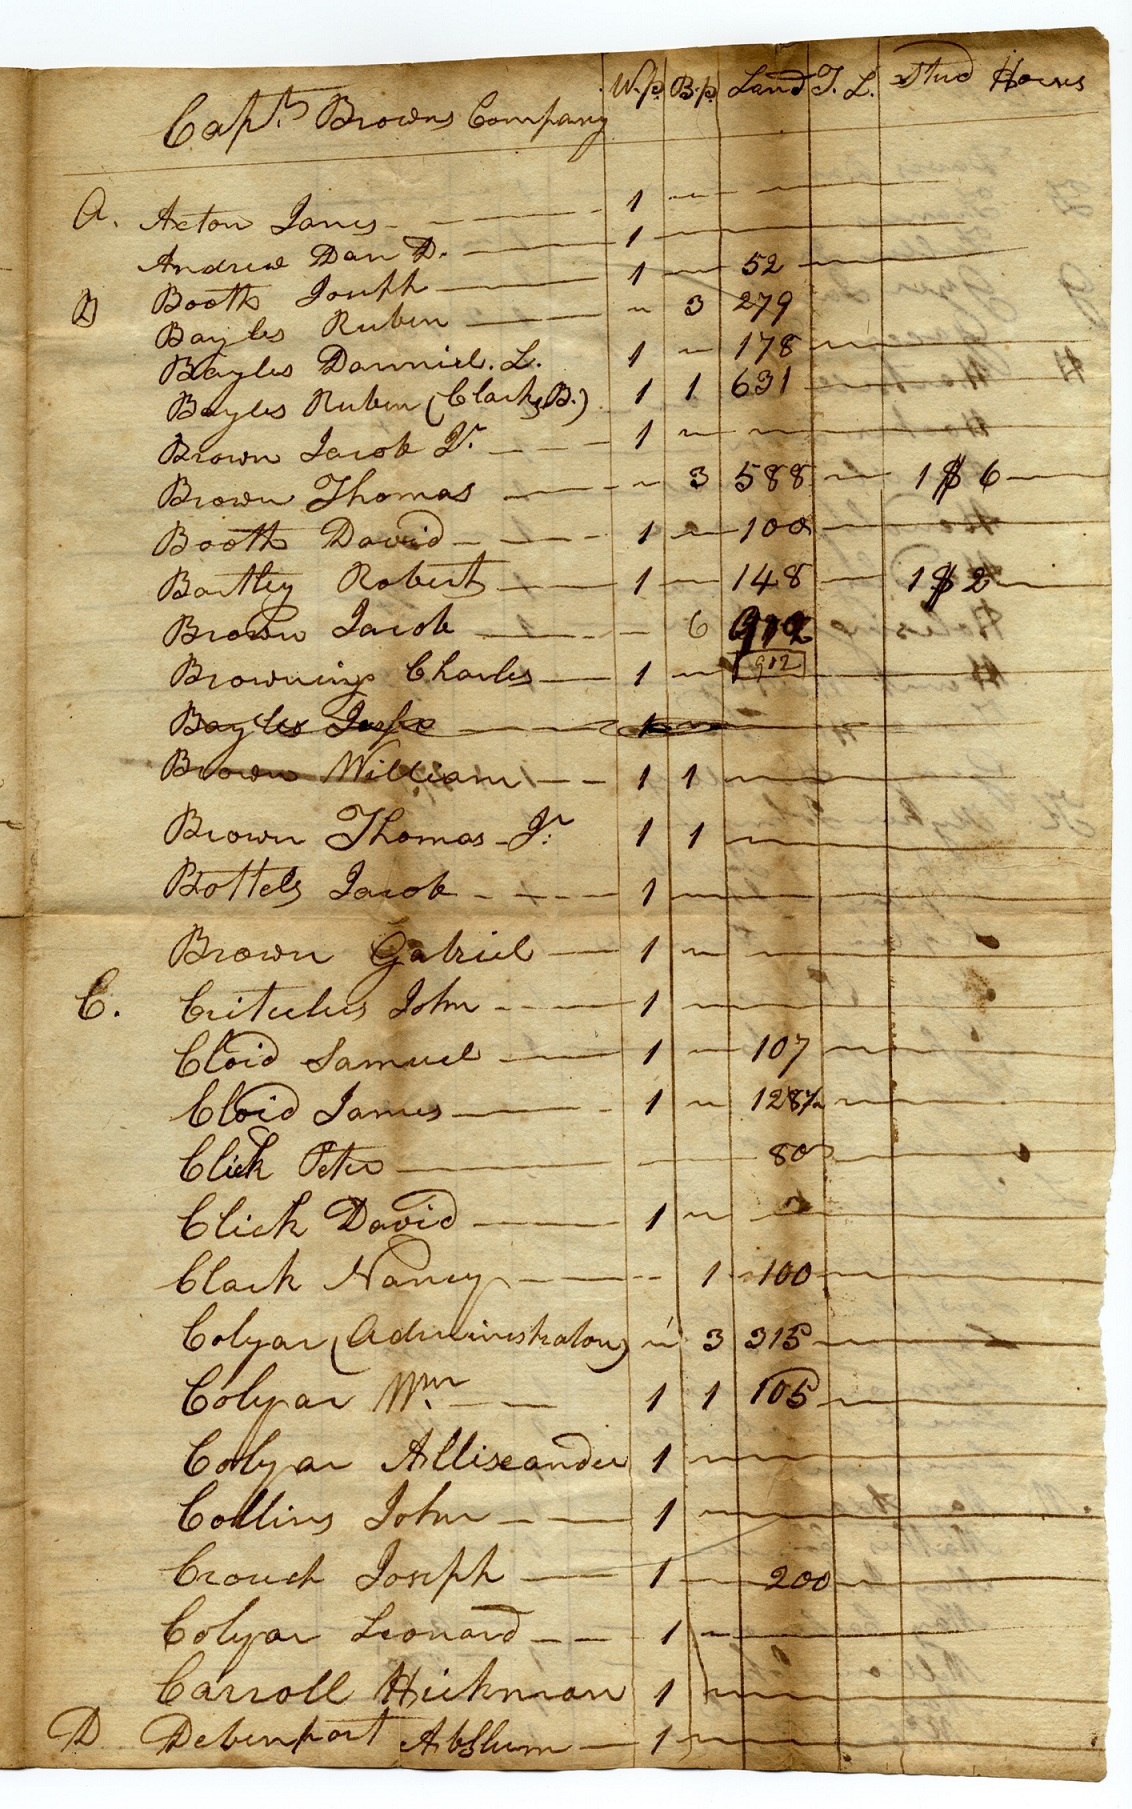 Capt. Browns Company W.p. B.p. Land T. L. Stud Horses
A. Acton James 1
Andrew Dan D. 1
B Booth Joseph 1 52
Bayles Ruben 3 279
Bayles Danniel. L. 1 178
Bayles Ruben (Clarks B.) 1 1 631
Brown Jacob Jr. 1
Brown Thomas 3 588 1 $ 6
Booth David 1 100
Bartley Robert 1 148 1 $ 2
Brown Jacob 6 912
912
Browning Charles 1
Bayles 1
Brown William 1 1
Brown Thomas Jr. 1 1
Bottels Jacob 1
Brown Gabriel 1
C. John 1
Cloid Samuel 1 107
Cloid James 1 128½
Click Peter 80
Click David 1
Clark Nancy 1 100
Colyar (Administrator) 3 315
Colyar Wm. 1 1 105
Colyar Allixander 1
Collins John 1
Crouch Joseph 1 200
Colyar Leonard 1
Carroll Hickman 1
D Debenport Abslum 1